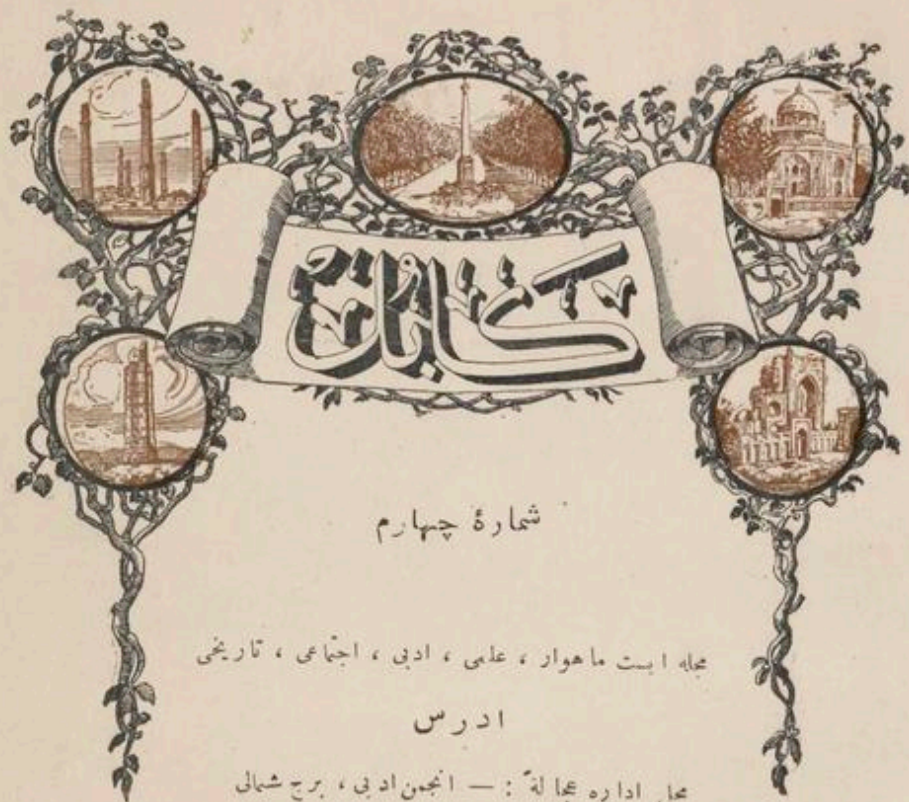 کابل
شمارهٔ چهارم
مجله ایست ماهوار ، علمی ، ادبی ، اجتماعی ، تاریخی
ادرس
محل اداره عجالةً : — انجمن ادبی ، برج شمالی